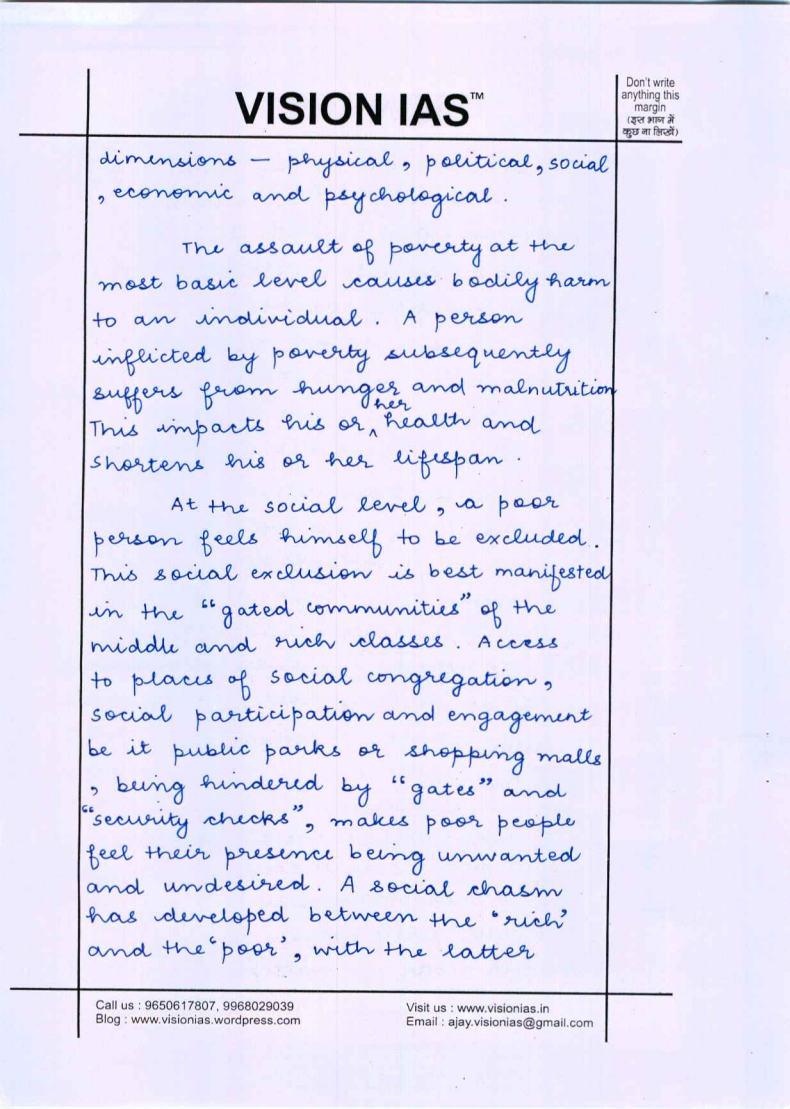 VISION IAS™
Don't write
anything this
margin
(इस भाग में
कुछ ना लिखें)
dimensions — physical, political, social
, economic and psychological.
The assault of poverty at the
most basic level causes bodily harm
to an individual. A person
inflicted by poverty subsequently
suffers from hunger and malnutrition
This impacts his or ^her health and
shortens his or her lifespan.
At the social level, a poor
person feels himself to be excluded.
This social exclusion is best manifested
in the "gated communities" of the
middle and rich classes. Access
to places of social congregation,
social participation and engagement
be it public parks or shopping malls
, being hindered by "gates" and
"security checks", makes poor people
feel their presence being unwanted
and undesired. A social chasm
has developed between the 'rich'
and the 'poor', with the latter
Call us : 9650617807, 9968029039
Blog : www.visionias.wordpress.com
Visit us : www.visionias.in
Email : ajay.visionias@gmail.com